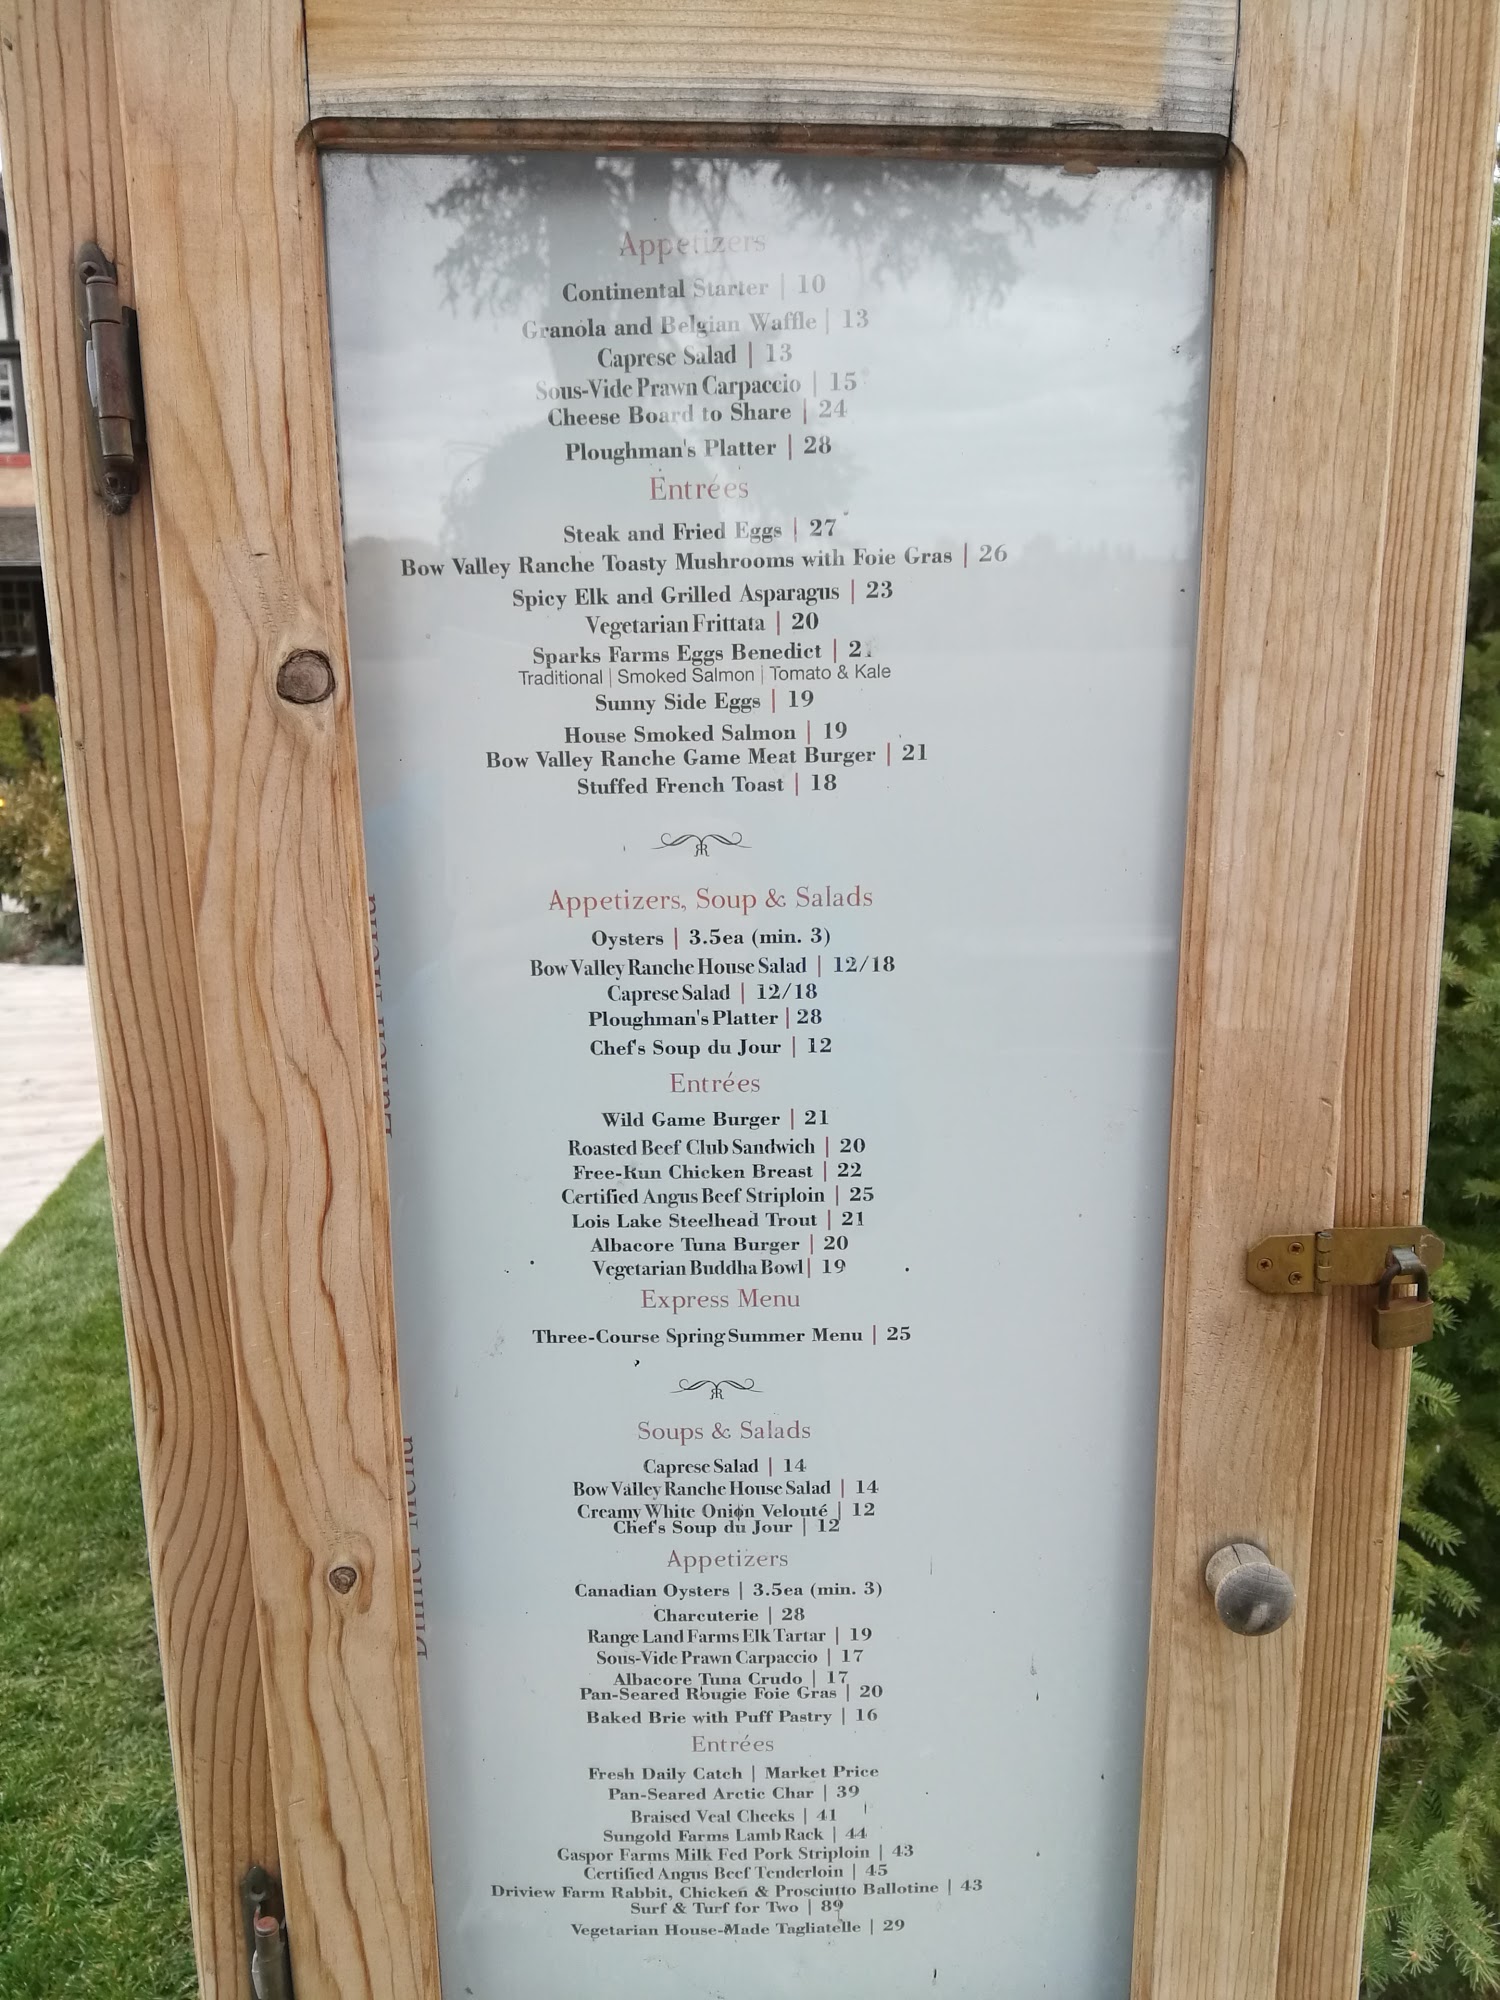 Appetizers
Continental Starter | 10
Granola and Belgian Waffle | 13
Caprese Salad | 13
Sous-Vide Prawn Carpaccio | 15
Cheese Board to Share | 24
Ploughman's Platter | 28
Entrées
Steak and Fried Eggs | 27
Bow Valley Ranche Toasty Mushrooms with Foie Gras | 26
Spicy Elk and Grilled Asparagus | 23
Vegetarian Frittata | 20
Sparks Farms Eggs Benedict |
Traditional | Smoked Salmon | Tomato & Kale
Sunny Side Eggs | 19
House Smoked Salmon | 19
Bow Valley Ranche Game Meat Burger | 21
Stuffed French Toast | 18
Lunch Menu
Appetizers, Soup & Salads
Oysters | 3.5ea (min. 3)
Bow Valley Ranche House Salad | 12/18
Caprese Salad | 12/18
Ploughman's Platter | 28
Chef's Soup du Jour | 12
Entrées
Wild Game Burger | 21
Roasted Beef Club Sandwich | 20
Free-Run Chicken Breast | 22
Certified Angus Beef Striploin | 25
Lois Lake Steelhead Trout | 21
Albacore Tuna Burger | 20
Vegetarian Buddha Bowl | 19
Express Menu
Three-Course Spring Summer Menu | 25
Dinner Menu
Soups & Salads
Caprese Salad | 14
Bow Valley Ranche House Salad | 14
Creamy White Onion Velouté | 12
Chef's Soup du Jour | 12
Appetizers
Canadian Oysters | 3.5ea (min. 3)
Charcuterie | 28
Range Land Farms Elk Tartar | 19
Sous-Vide Prawn Carpaccio | 17
Albacore Tuna Crudo | 17
Pan-Seared Rougie Foie Gras | 20
Baked Brie with Puff Pastry | 16
Entrées
Fresh Daily Catch | Market Price
Pan-Seared Arctic Char | 39
Braised Veal Cheeks | 41
Sungold Farms Lamb Rack | 44
Gaspor Farms Milk Fed Pork Striploin | 43
Certified Angus Beef Tenderloin | 45
Driview Farm Rabbit, Chicken & Prosciutto Ballotine | 43
Surf & Turf for Two | 89
Vegetarian House-Made Tagliatelle | 29